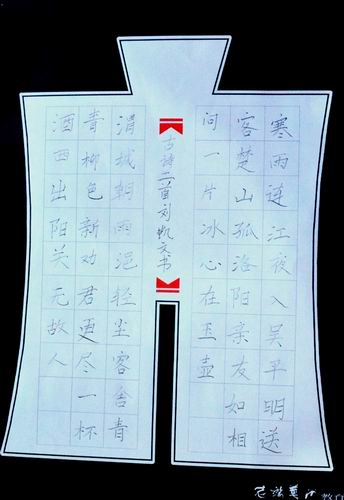 寒雨连江夜入吴平明送
客楚山孤洛阳亲友如相
问一片冰心在玉壶
古诗二首刘凯文书
渭城朝雨浥轻尘客舍青
青柳色新劝君更尽一杯
酒西出阳关无故人